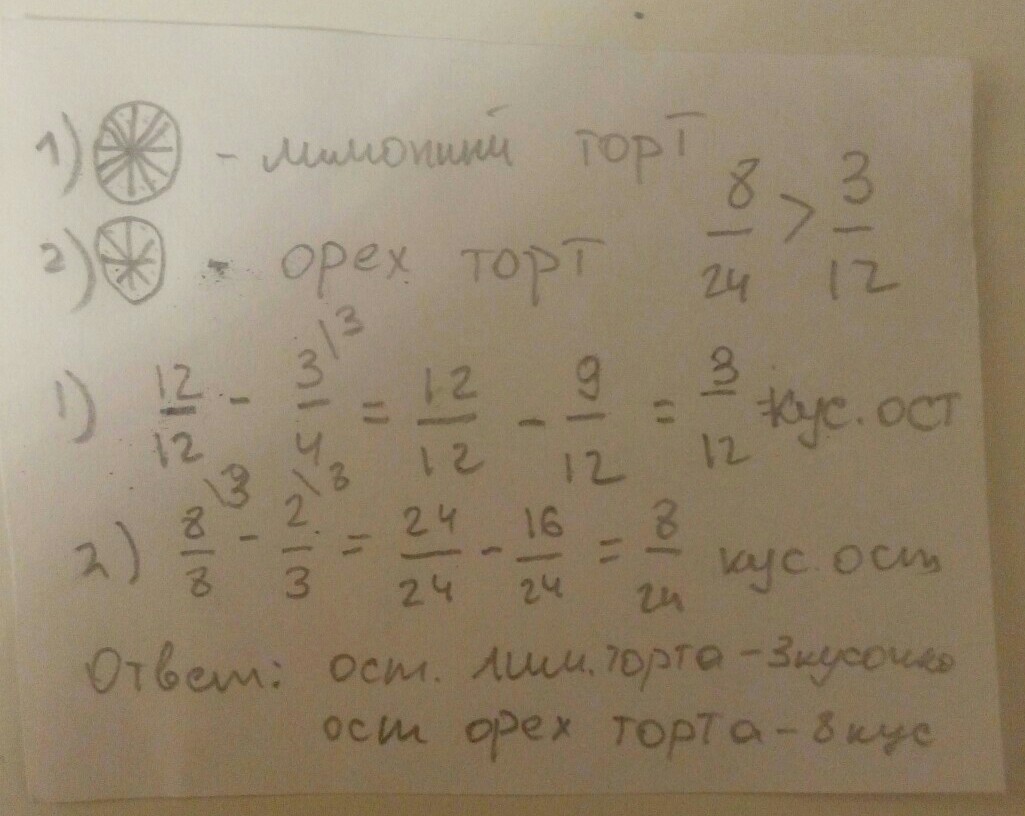 1) - лимонный торт
2) - орех торт
8/24 > 3/12
1) 12/12 - 3/4 \3 = 12/12 - 9/12 = 3/12 кус. ост
2) 8/8 \3 - 2/3 \8 = 24/24 - 16/24 = 8/24 кус. ост
Ответ: ост. лим. торта - 3 кусочка
ост орех торта - 8 кус